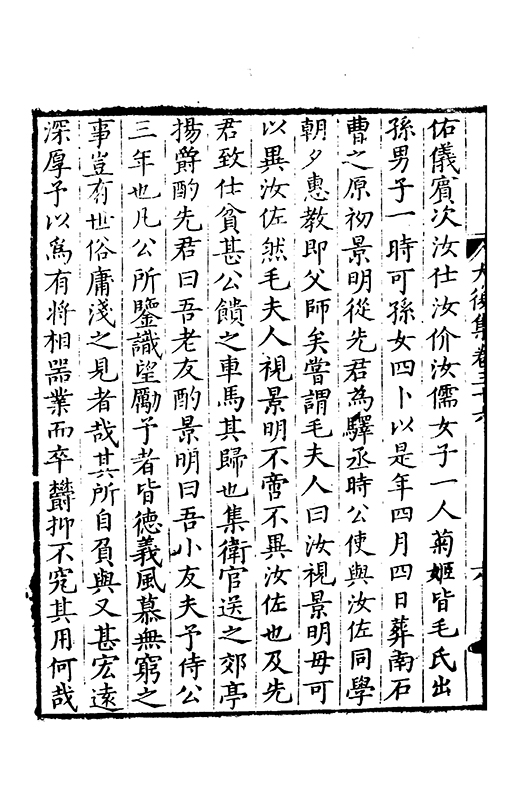 佑儀賓次汝仕汝价汝儒女子一人菊姬皆毛氏出
孫男子一時可孫女四卜以是年四月四日葬南石
曹之原初景明從先君為驛丞時公使與汝佐同學
朝夕惠教即父師矣嘗謂毛夫人曰汝視景明毋可
以異汝佐然毛夫人視景明不啻不異汝佐也及先
君致仕貧甚公饋之車馬其歸也集衛官送之郊亭
揚爵酌先君曰吾老友酌景明曰吾小友夫予侍公
三年也凡公所鑒識望勵予者皆德義風慕無窮之
事豈有世俗庸淺之見者哉其所自負與又甚宏遠
深厚予以為有將相器業而卒欝抑不究其用何哉
大復集卷三十六
六